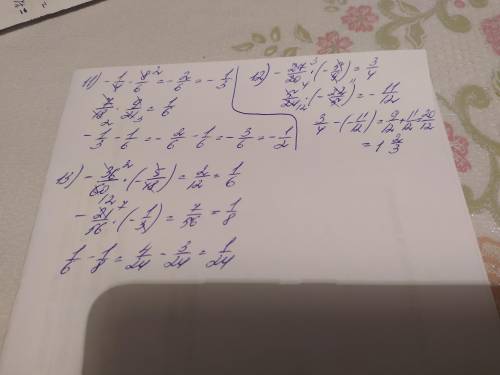 11) -1/4 · 8/6 = -2/6 = -1/3
= 1/6
-1/3 - 1/6 = -2/6 - 1/6 = -3/6 = -1/2
12) = 3/4
= -11/12
3/4 - (-11/12) = 9/12 + 11/12 = 20/12
= 1 2/3
13) -36/60 · (-5/18) = 2/12 = 1/6
-21/16 · (-1/3) = 7/56 = 1/8
1/6 - 1/8 = 4/24 - 3/24 = 1/24